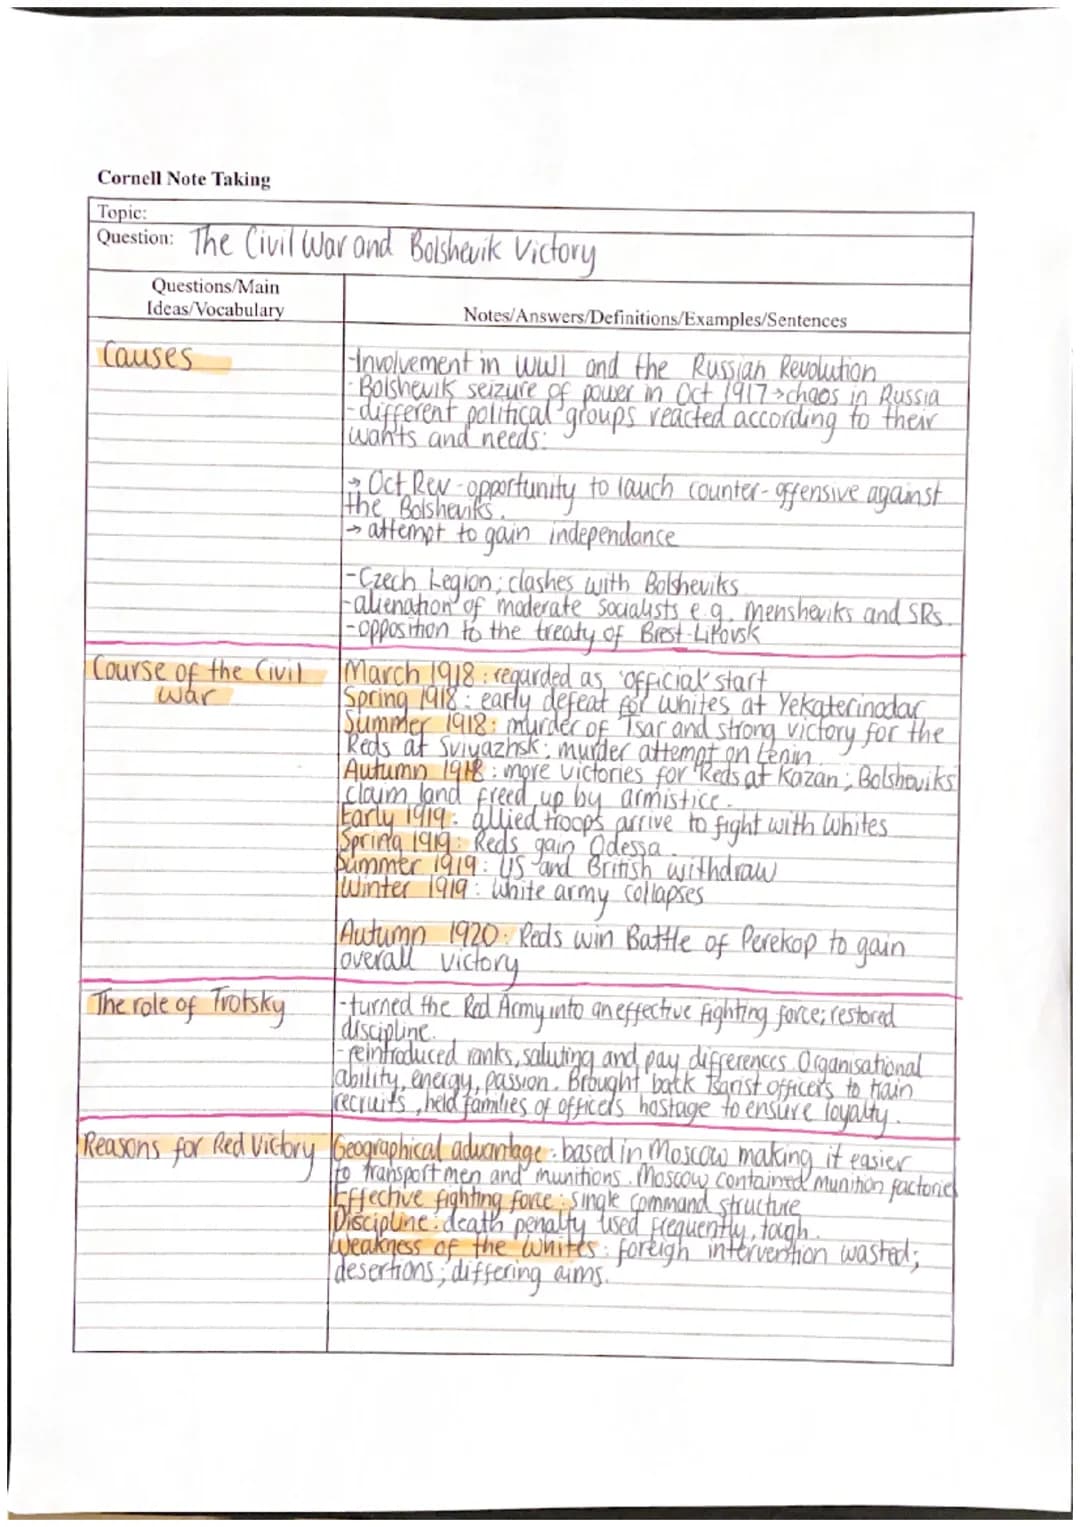 Cornell Note Taking
Topic:
Question: The Civil War and Bolshevik Victory
Questions/Main
Ideas/Vocabulary
Notes/Answers/Definitions/Examples/Sentences
Causes
-Involvement in WWI and the Russian Revolution
- Bolshevik seizure of power in Oct 1917 → chaos in Russia
-different political groups reacted according to their
wants and needs:
→ Oct Rev - opportunity to lauch counter-offensive against
the Bolsheviks.
→ attempt to gain independance
-Czech Legion; clashes with Bolsheviks
-alienation of moderate socialists e.g. Mensheviks and SRs.
-opposition to the treaty of Brest-Litovsk
Course of the Civil
War
March 1918: regarded as 'official' start
Spring 1918: early defeat for whites at Yekaterinodar
Summer 1918: murder of Tsar and strong victory for the
Reds at Sviyazhsk; murder attempt on Lenin.
Autumn 1918: more victories for Reds at Kazan; Bolsheviks
claim land freed up by armistice.
Early 1919: allied troops arrive to fight with Whites
Spring 1919: Reds gain Odessa.
Summer 1919: US and British withdraw
Winter 1919: White army collapses
Autumn 1920: Reds win Battle of Perekop to gain
overall victory
The role of Trotsky
-turned the Red Army into an effective fighting force; restored
discipline.
-reintroduced ranks, saluting and pay differences. Organisational
ability, energy, passion. Brought back Tsarist officers to train
recruits, held families of officers hostage to ensure loyalty.
Reasons for Red Victory
Geographical advantage: based in Moscow making it easier
to transport men and munitions. Moscow contained munition factories
Effective fighting force: single command structure
Discipline: death penalty used frequently, tough.
Weakness of the Whites: foreign intervention wasted;
desertions; differing aims.